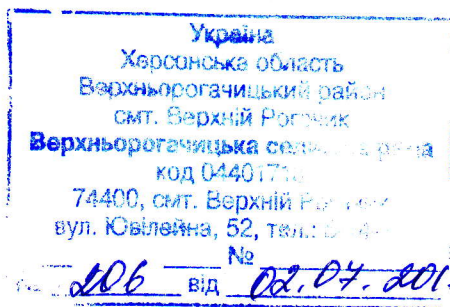 Україна
Херсонська область
Верхньорогачицький район
смт. Верхній Рогачик
Верхньорогачицька селищна рада
код 0440171
74400, смт. Верхній
вул. Ювілейна, 52, тел.:
№
206 від 02.07.201